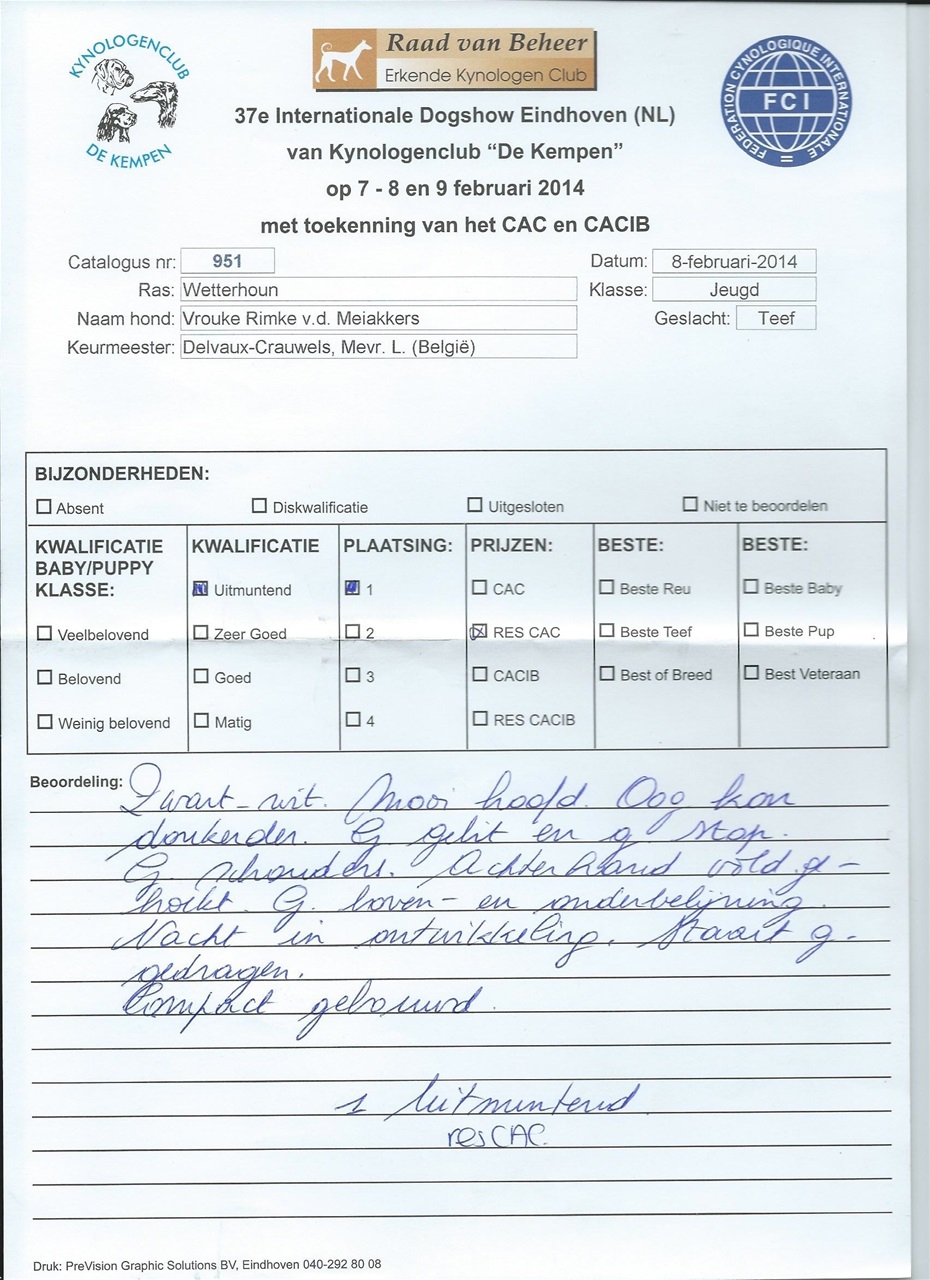 KYNOLOGENCLUB
DE KEMPEN
Raad van Beheer
Erkende Kynologen Club
FEDERATION CYNOLOGIQUE INTERNATIONALE
FCI
37e Internationale Dogshow Eindhoven (NL)
van Kynologenclub “De Kempen”
op 7 - 8 en 9 februari 2014
met toekenning van het CAC en CACIB
Catalogus nr: 951 Datum: 8-februari-2014
Ras: Wetterhoun Klasse: Jeugd
Naam hond: Vrouke Rimke v.d. Meiakkers Geslacht: Teef
Keurmeester: Delvaux-Crauwels, Mevr. L. (België)
BIJZONDERHEDEN:
Absent Diskwalificatie Uitgesloten Niet te beoordelen
KWALIFICATIE
BABY/PUPPY
KLASSE:
Veelbelovend
Belovend
Weinig belovend
KWALIFICATIE
Uitmuntend
Zeer Goed
Goed
Matig
PLAATSING:
1
2
3
4
PRIJZEN:
CAC
RES CAC
CACIB
RES CACIB
BESTE:
Beste Reu
Beste Teef
Best of Breed
BESTE:
Beste Baby
Beste Pup
Best Veteraan
Beoordeling: Zwart-wit. Mooi hoofd. Oog kon
donkerder. G gebit en g stop.
G. schouders. Achterhand vold. ge-
hoekt. G. boven- en onderbelijning.
Vacht in ontwikkeling. Staart g.
gedragen.
Compact gebouwd.
1 Uitmuntend
res CAC.
Druk: PreVision Graphic Solutions BV, Eindhoven 040-292 80 08